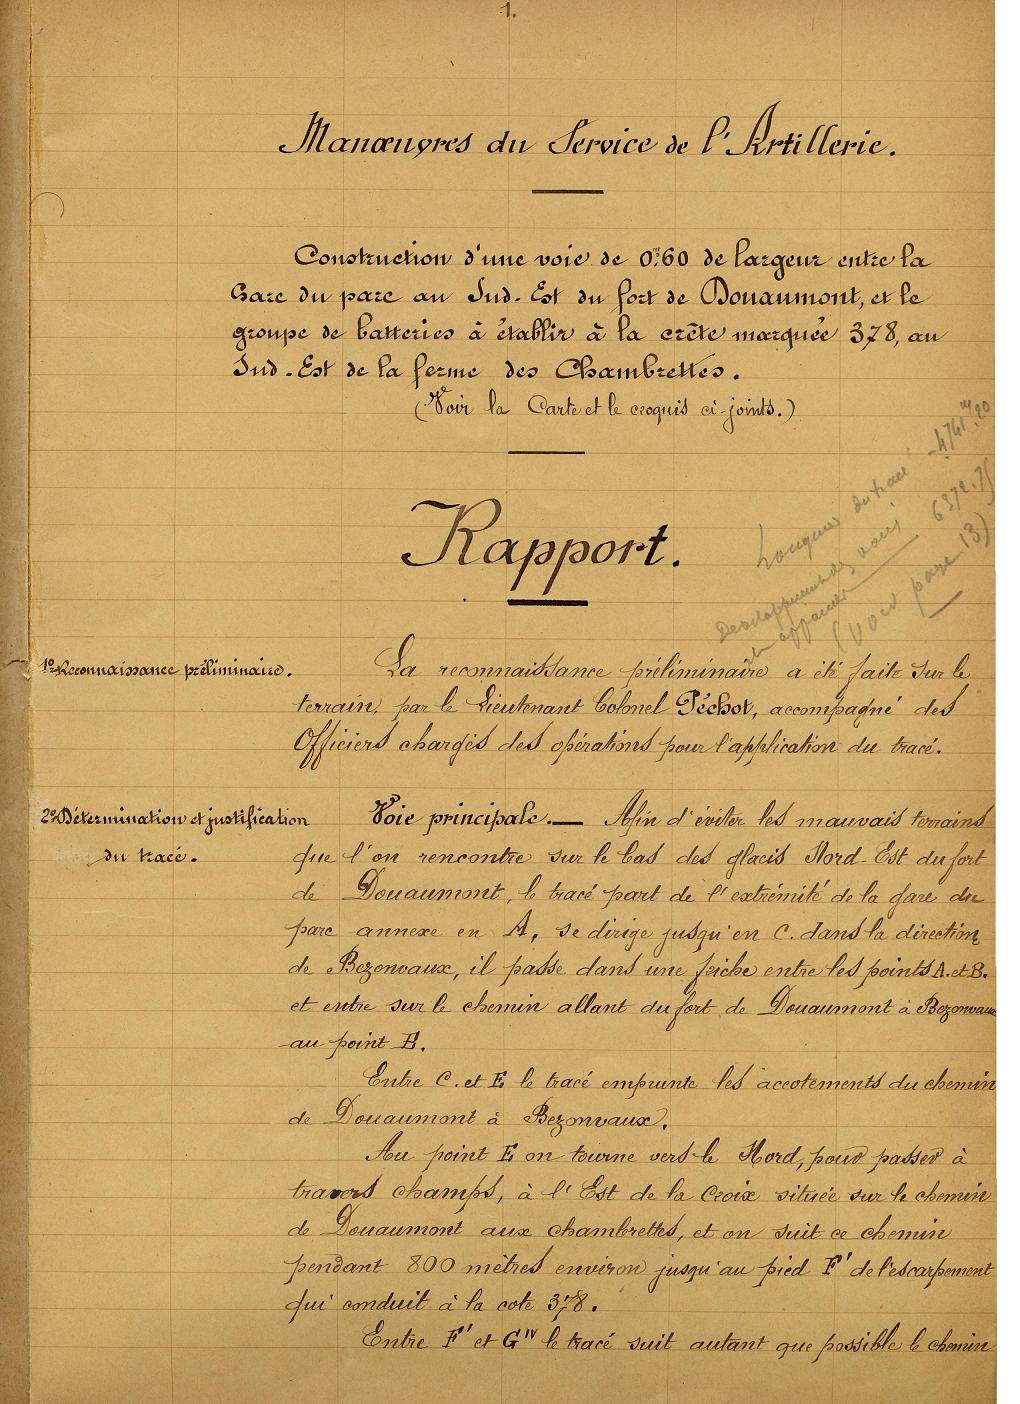 1.
Manœuvres du Service de l'Artillerie.
Construction d'une voie de 0m,60 de largeur entre la
Gare du parc au Sud-Est du fort de Douaumont, et le
groupe de batteries à établir à la crête marquée 378, au
Sud-Est de la ferme des Chambrettes.
(Voir la Carte et le croquis ci-joints.)
Longueur du tracé 4741m,20
Développement des voies 6372.75
(Voir page 13)
Rapport.
1º Reconnaissance préliminaire.
La reconnaissance préliminaire a été faite sur le
terrain, par le Lieutenant Colonel Péchot, accompagné des
Officiers chargés des opérations pour l'application du tracé.
2º Détermination et justification
du tracé.
Voie principale. — Afin d'éviter les mauvais terrains
que l'on rencontre sur le bas des glacis Nord-Est du fort
de Douaumont, le tracé part de l'extrémité de la gare du
parc annexe en A, se dirige jusqu'en C. dans la direction
de Bezonvaux, il passe dans une friche entre les points A. et B.
et entre sur le chemin allant du fort de Douaumont à Bezonvaux
au point E.
Entre C. et E le tracé emprunte les accotements du chemin
de Douaumont à Bezonvaux.
Au point E on tourne vers le Nord, pour passer à
travers champs, à l'Est de la Croix située sur le chemin
de Douaumont aux chambrettes, et on suit ce chemin
pendant 800 mètres environ jusqu'au pied F' de l'escarpement
qui conduit à la cote 378.
Entre F' et G<sup>IV</sup> le tracé suit autant que possible le chemin